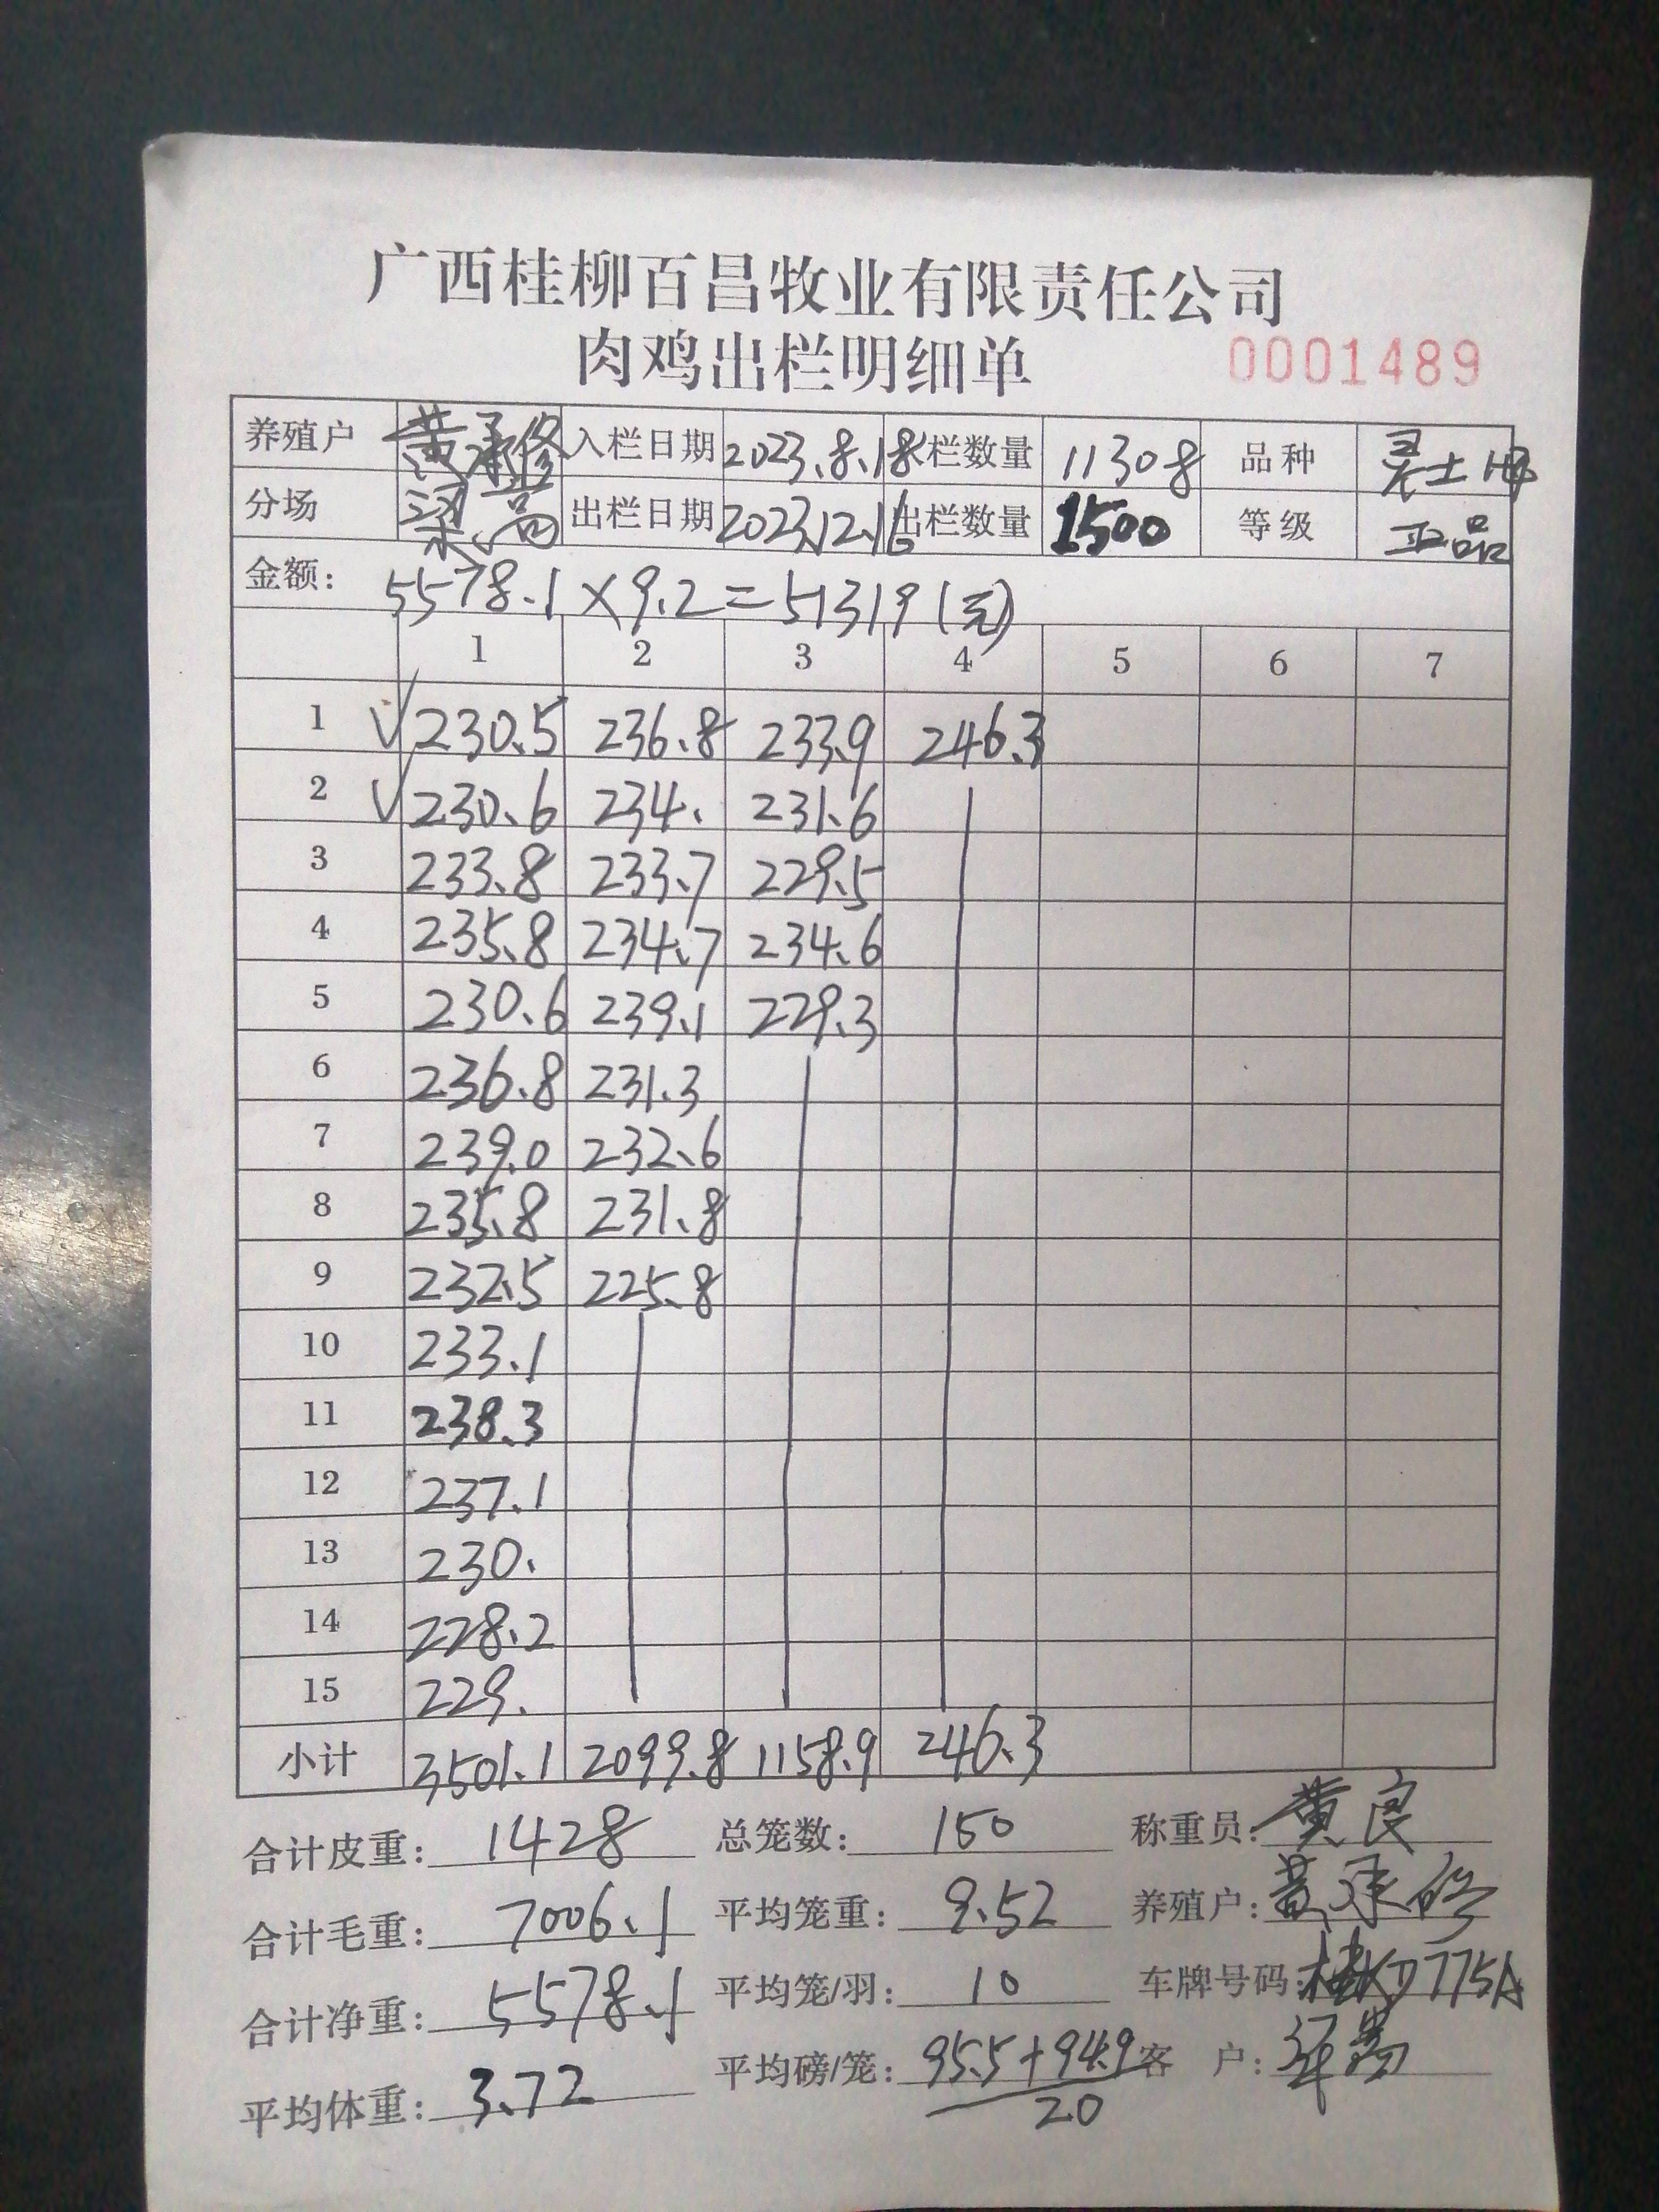 广西桂柳百昌牧业有限责任公司
肉鸡出栏明细单 0001489
养殖户 黄承修 入栏日期 2023.8.18 栏数量 11308 品种 灵土
分场 出栏日期 2023.12.16 出栏数量 1500 等级 正品
金额: 5578.1×9.2=51319(元)
1 2 3 4 5 6 7
1 √230.5 236.8 233.9 246.3
2 √230.6 234. 231.6
3 233.8 233.7 229.5
4 235.8 234.7 234.6
5 230.6 239.1 229.3
6 236.8 231.3
7 239.0 232.6
8 235.8 231.8
9 232.5 225.8
10 233.1
11 238.3
12 237.1
13 230.
14 228.2
15 229.
小计 3501.1 2099.8 1158.9 246.3
合计皮重: 1428 总笼数: 150 称重员: 黄良
合计毛重: 7006.1 平均笼重: 9.52 养殖户: 黄承修
合计净重: 5578.1 平均笼/羽: 10 车牌号码: 775A
平均体重: 3.72 平均磅/笼: 95.5+94.9 客 户:
20